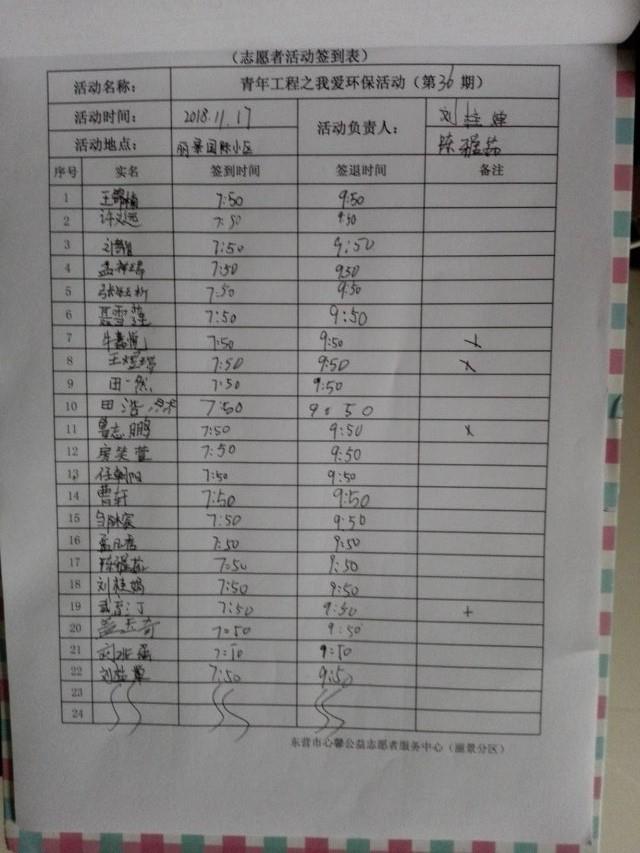 （志愿者活动签到表）
活动名称： 青年工程之我爱环保活动（第36期）
活动时间： 2018.11.17 活动负责人： 刘桂婵
活动地点： 丽景国际小区 陈
序号 实名 签到时间 签退时间 备注
1 王 7:50 9:50
2 许 7:50 9:50
3 刘 7:50 9:50
4 孟祥瑞 7:50 9:50
5 张 7:50 9:50
6 聂雪莲 7:50 9:50
7 牛嘉悦 7:50 9:50 x
8 王 7:50 9:50 x
9 田一然 7:50 9:50
10 田浩然 7:50 9:50
11 鲁志鹏 7:50 9:50 x
12 房笑萱 7:50 9:50
13 任朝阳 7:50 9:50
14 曹轩 7:50 9:50
15 7:50 9:50
16 孟凡 7:50 9:50
17 陈 7:50 9:50
18 刘桂娟 7:50 9:50
19 武 7:50 9:50 +
20 7:50 9:50
21 刘 7:50 9:50
22 刘 7:50 9:50
23
24
东营市心馨公益志愿者服务中心（丽景分区）